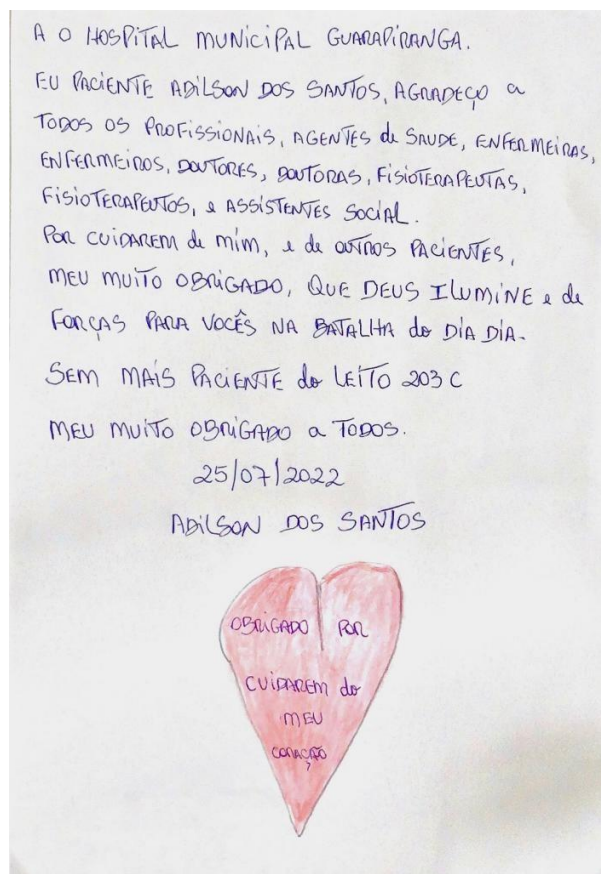 A O HOSPITAL MUNICIPAL GUARAPIRANGA.
EU PACIENTE ADILSON DOS SANTOS, AGRADEÇO a
TODOS OS PROFISSIONAIS, AGENTES de SAUDE, ENFERMEIRAS,
ENFERMEIROS, DOUTORES, DOUTORAS, FISIOTERAPEUTAS,
FISIOTERAPEUTOS, e ASSISTENTES SOCIAL.
POR CUIDAREM de MIM, e de OUTROS PACIENTES,
MEU MUITO OBRIGADO, QUE DEUS ILUMINE e de
FORÇAS PARA VOCÊS NA BATALHA do DIA DIA.
SEM MAIS PACIENTE do LEITO 203 C
MEU MUITO OBRIGADO a TODOS.
25/07/2022
ADILSON DOS SANTOS
OBRIGADO POR
CUIDAREM do
MEU
CORAÇÃO